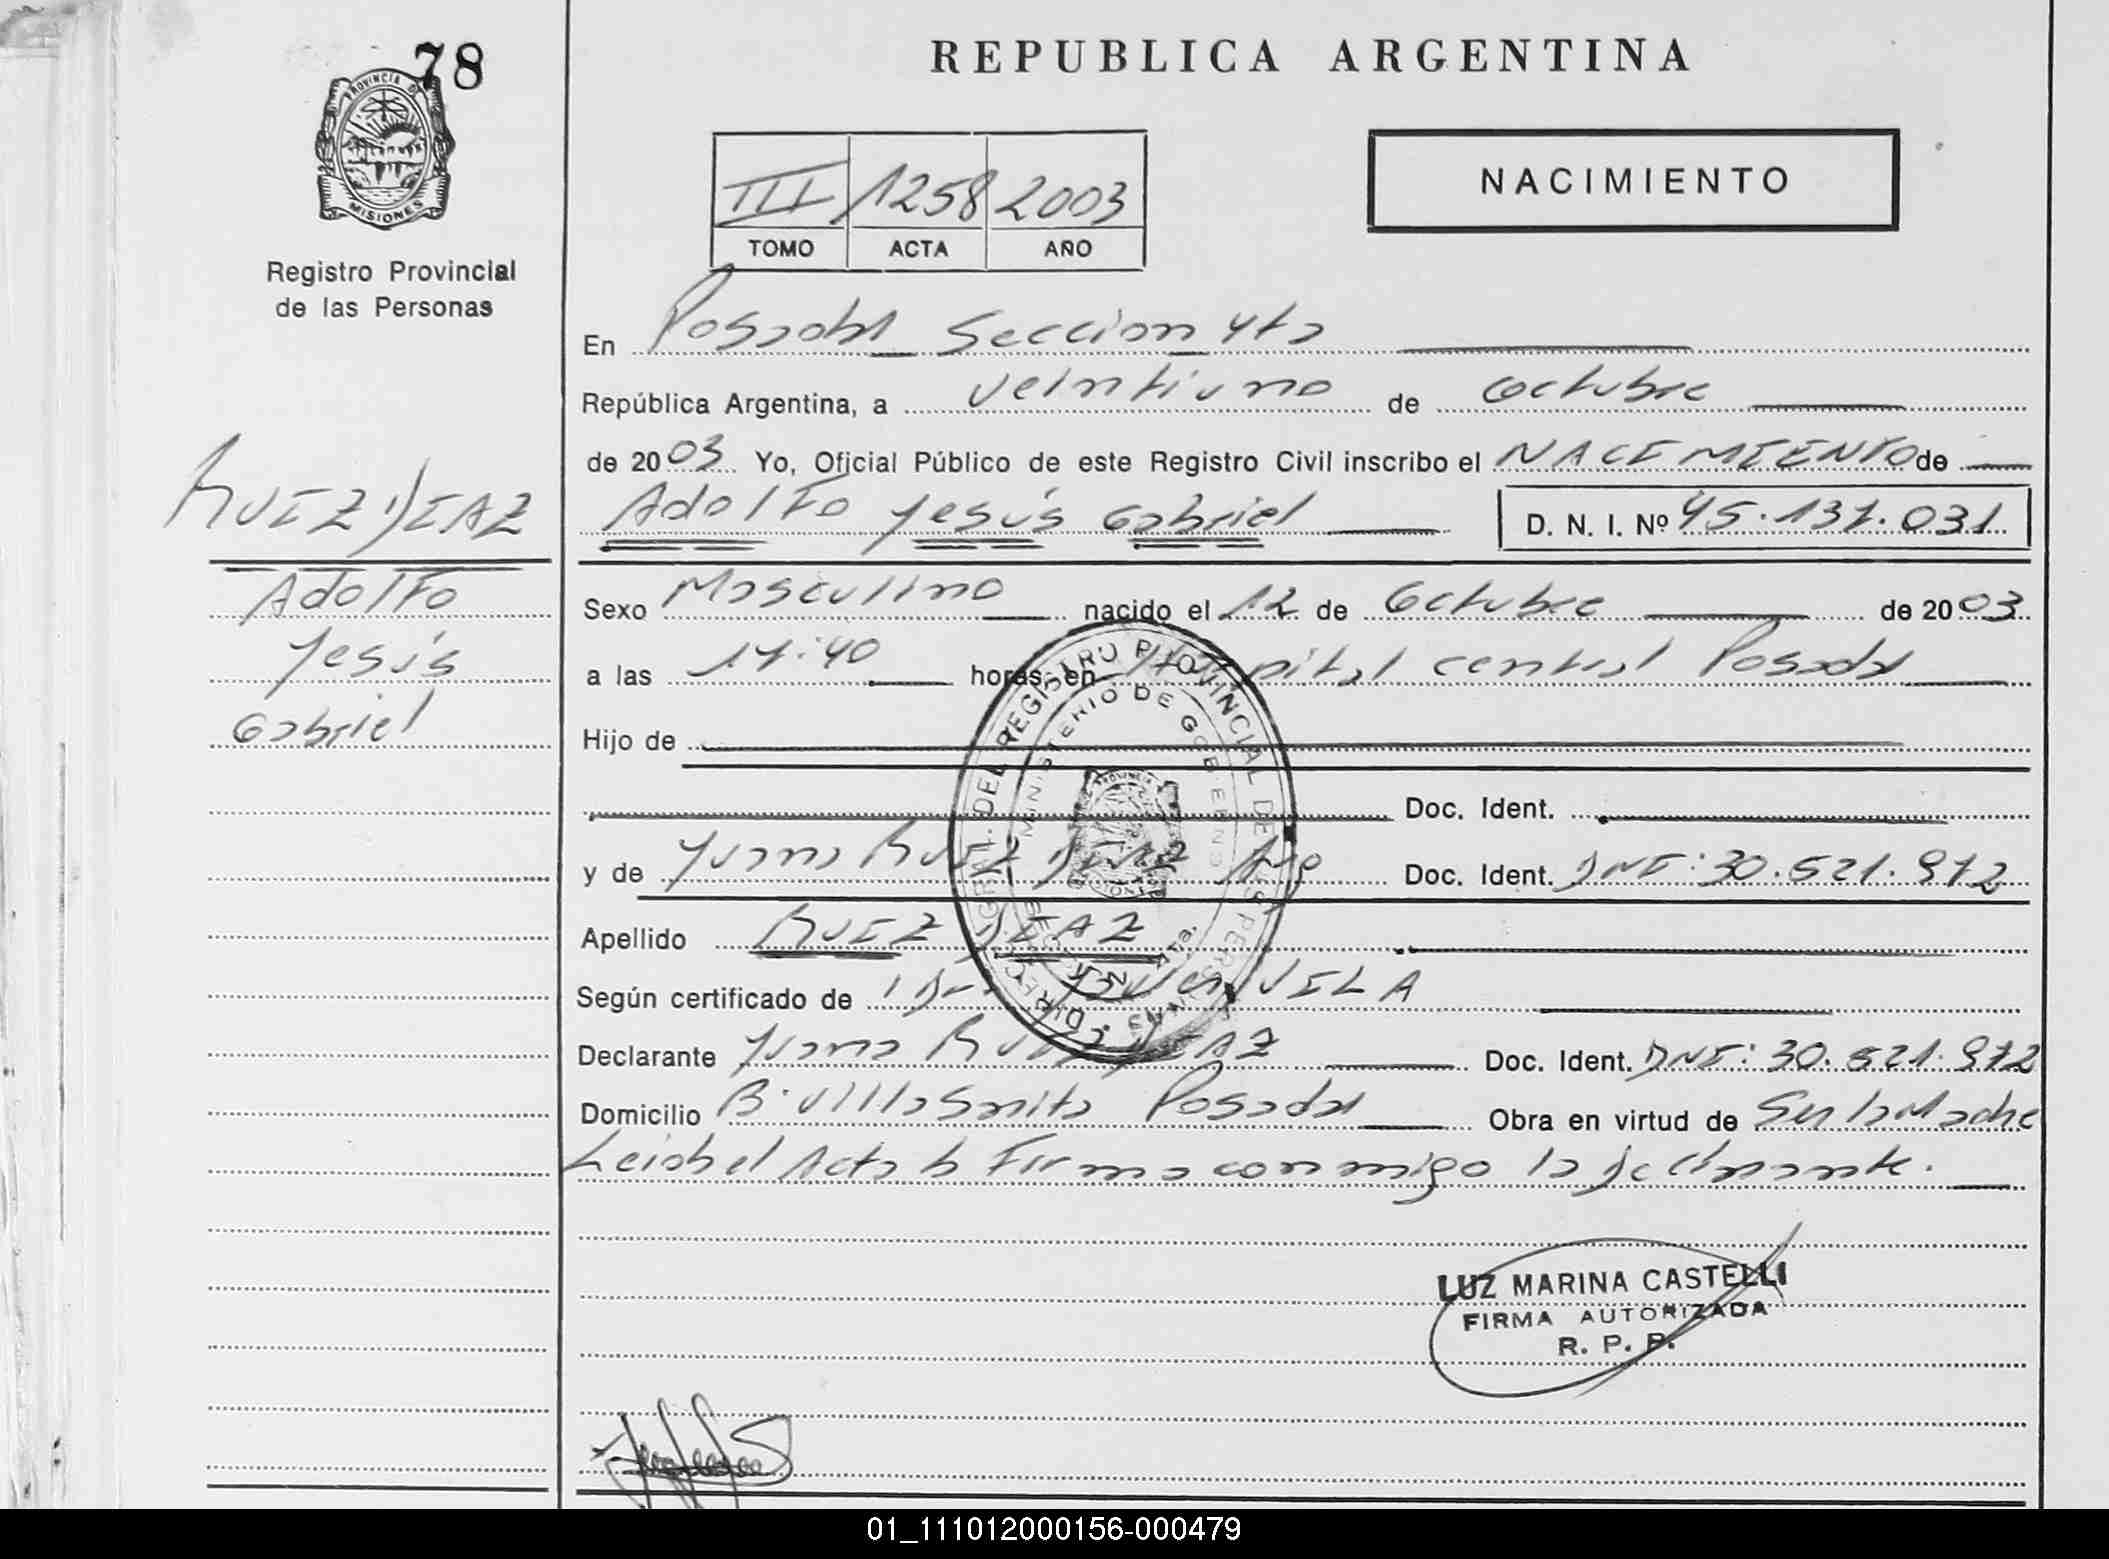 78
PROVINCIA D
MISIONES
Registro Provincial
de las Personas
REPUBLICA ARGENTINA
III 1258 2003
TOMO ACTA AÑO
NACIMIENTO
En Posadas Seccion 4ta
República Argentina, a veintiuno de Octubre
de 2003 Yo, Oficial Público de este Registro Civil inscribo el NACIMIENTO de
RUIZ DIAZ
Adolfo Jesús Gabriel D. N. I. Nº 45.137.031
Adolfo
Sexo Masculino nacido el 12 de Octubre de 2003
Jesús
a las 17:40 horas, en Hospital central Posadas
Gabriel
Hijo de
Doc. Ident.
y de Juana RUIZ DIAZ Doc. Ident. DNI: 30.521.972
Apellido RUIZ DIAZ
Según certificado de
Declarante Juana RUIZ DIAZ Doc. Ident. DNI: 30.521.972
Domicilio B. Villa Sarita Posadas Obra en virtud de Ser la Madre
Leida el Acta la Firma conmigo la declarante.
DIRECC. GRAL. DEL REGISTRO PROVINCIAL DE LAS PERSONAS
MINISTERIO DE GOBIERNO
LUZ MARINA CASTELLI
FIRMA AUTORIZADA
R. P. P.
01_111012000156-000479